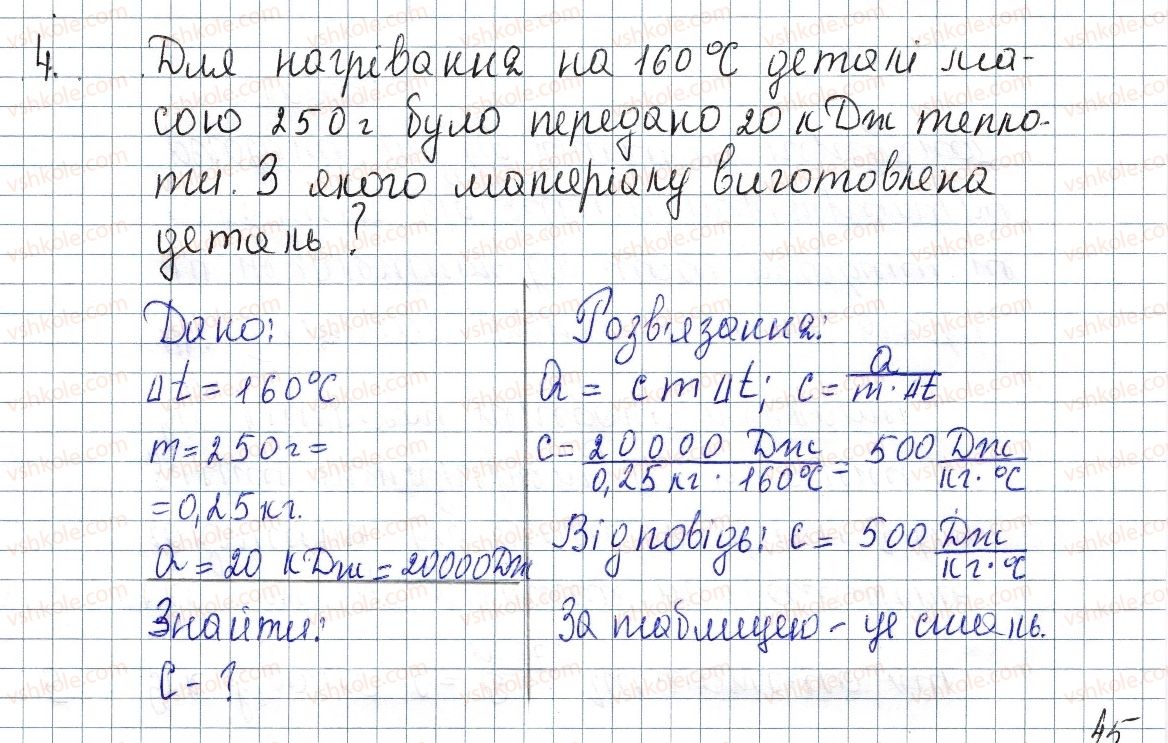 4. Для нагрівання на 160°С деталі ма-
сою 250г було передано 20 кДж тепло-
ти. З якого матеріалу виготовлена
деталь?
Дано:
Δt = 160°С
m = 250г =
= 0,25кг.
Q = 20 кДж = 20000Дж
Знайти:
С - ?
Розв'язання:
Q = c m Δt; c = Q / m · Δt
c = 20000 Дж / 0,25кг · 160°С = 500 Дж / кг · °С
Відповідь: c = 500 Дж / кг · °С
За таблицею - це сталь.
45